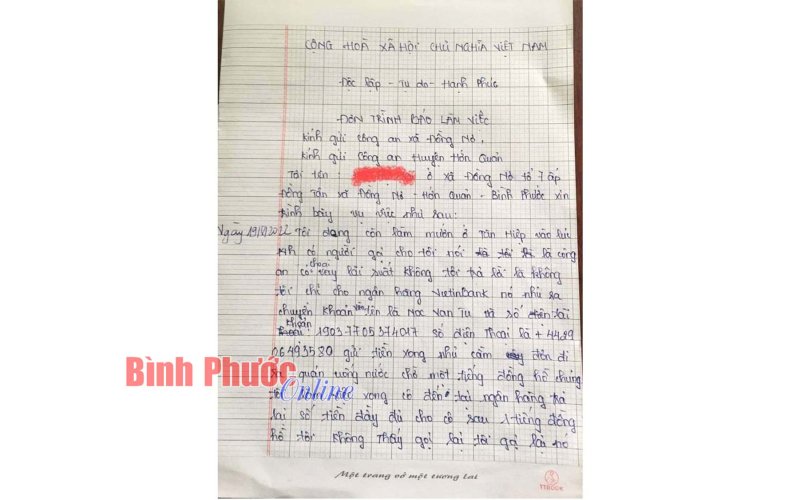 CỘNG HOÀ XÃ HỘI CHỦ NGHĨA VIỆT NAM
Độc lập - Tự do - Hạnh Phúc
ĐƠN TRÌNH BÁO LÀM VIỆC
kính gửi công an xã Đồng Nơ.
kính gửi Công an Huyện Hớn Quản
Tôi tên : ở xã Đồng Nơ tổ 7 ấp
Đồng Tân xã Đồng Nơ - Hớn Quản - Bình Phước xin
trình bày vụ việc như sau:
Ngày 19/ /2022 Tôi đang còn làm mướn ở Tân Hiệp vào lúc
9h có người gọi cho tôi nói là công
an có vay lãi suất không tôi trả lời là không
tôi chỉ cho ngân hàng VietinBank nó nhủ
chuyển khoản tên là Noc Van Tu và số tài
khoản : 19037705374017 số điện thoại là + 4429
06493530 gửi tiền xong nhủ cầm đơn đi
quán uống nước chờ một tiếng đồng hồ chúng
tôi xong có đến tại ngân hàng trả
lại số tiền đầy đủ cho cô sau 1 tiếng đồng
hồ tôi không thấy gọi lại tôi gọi lại nó
Bình Phước
Online
Một trang vở một tương lai
TTBOOK